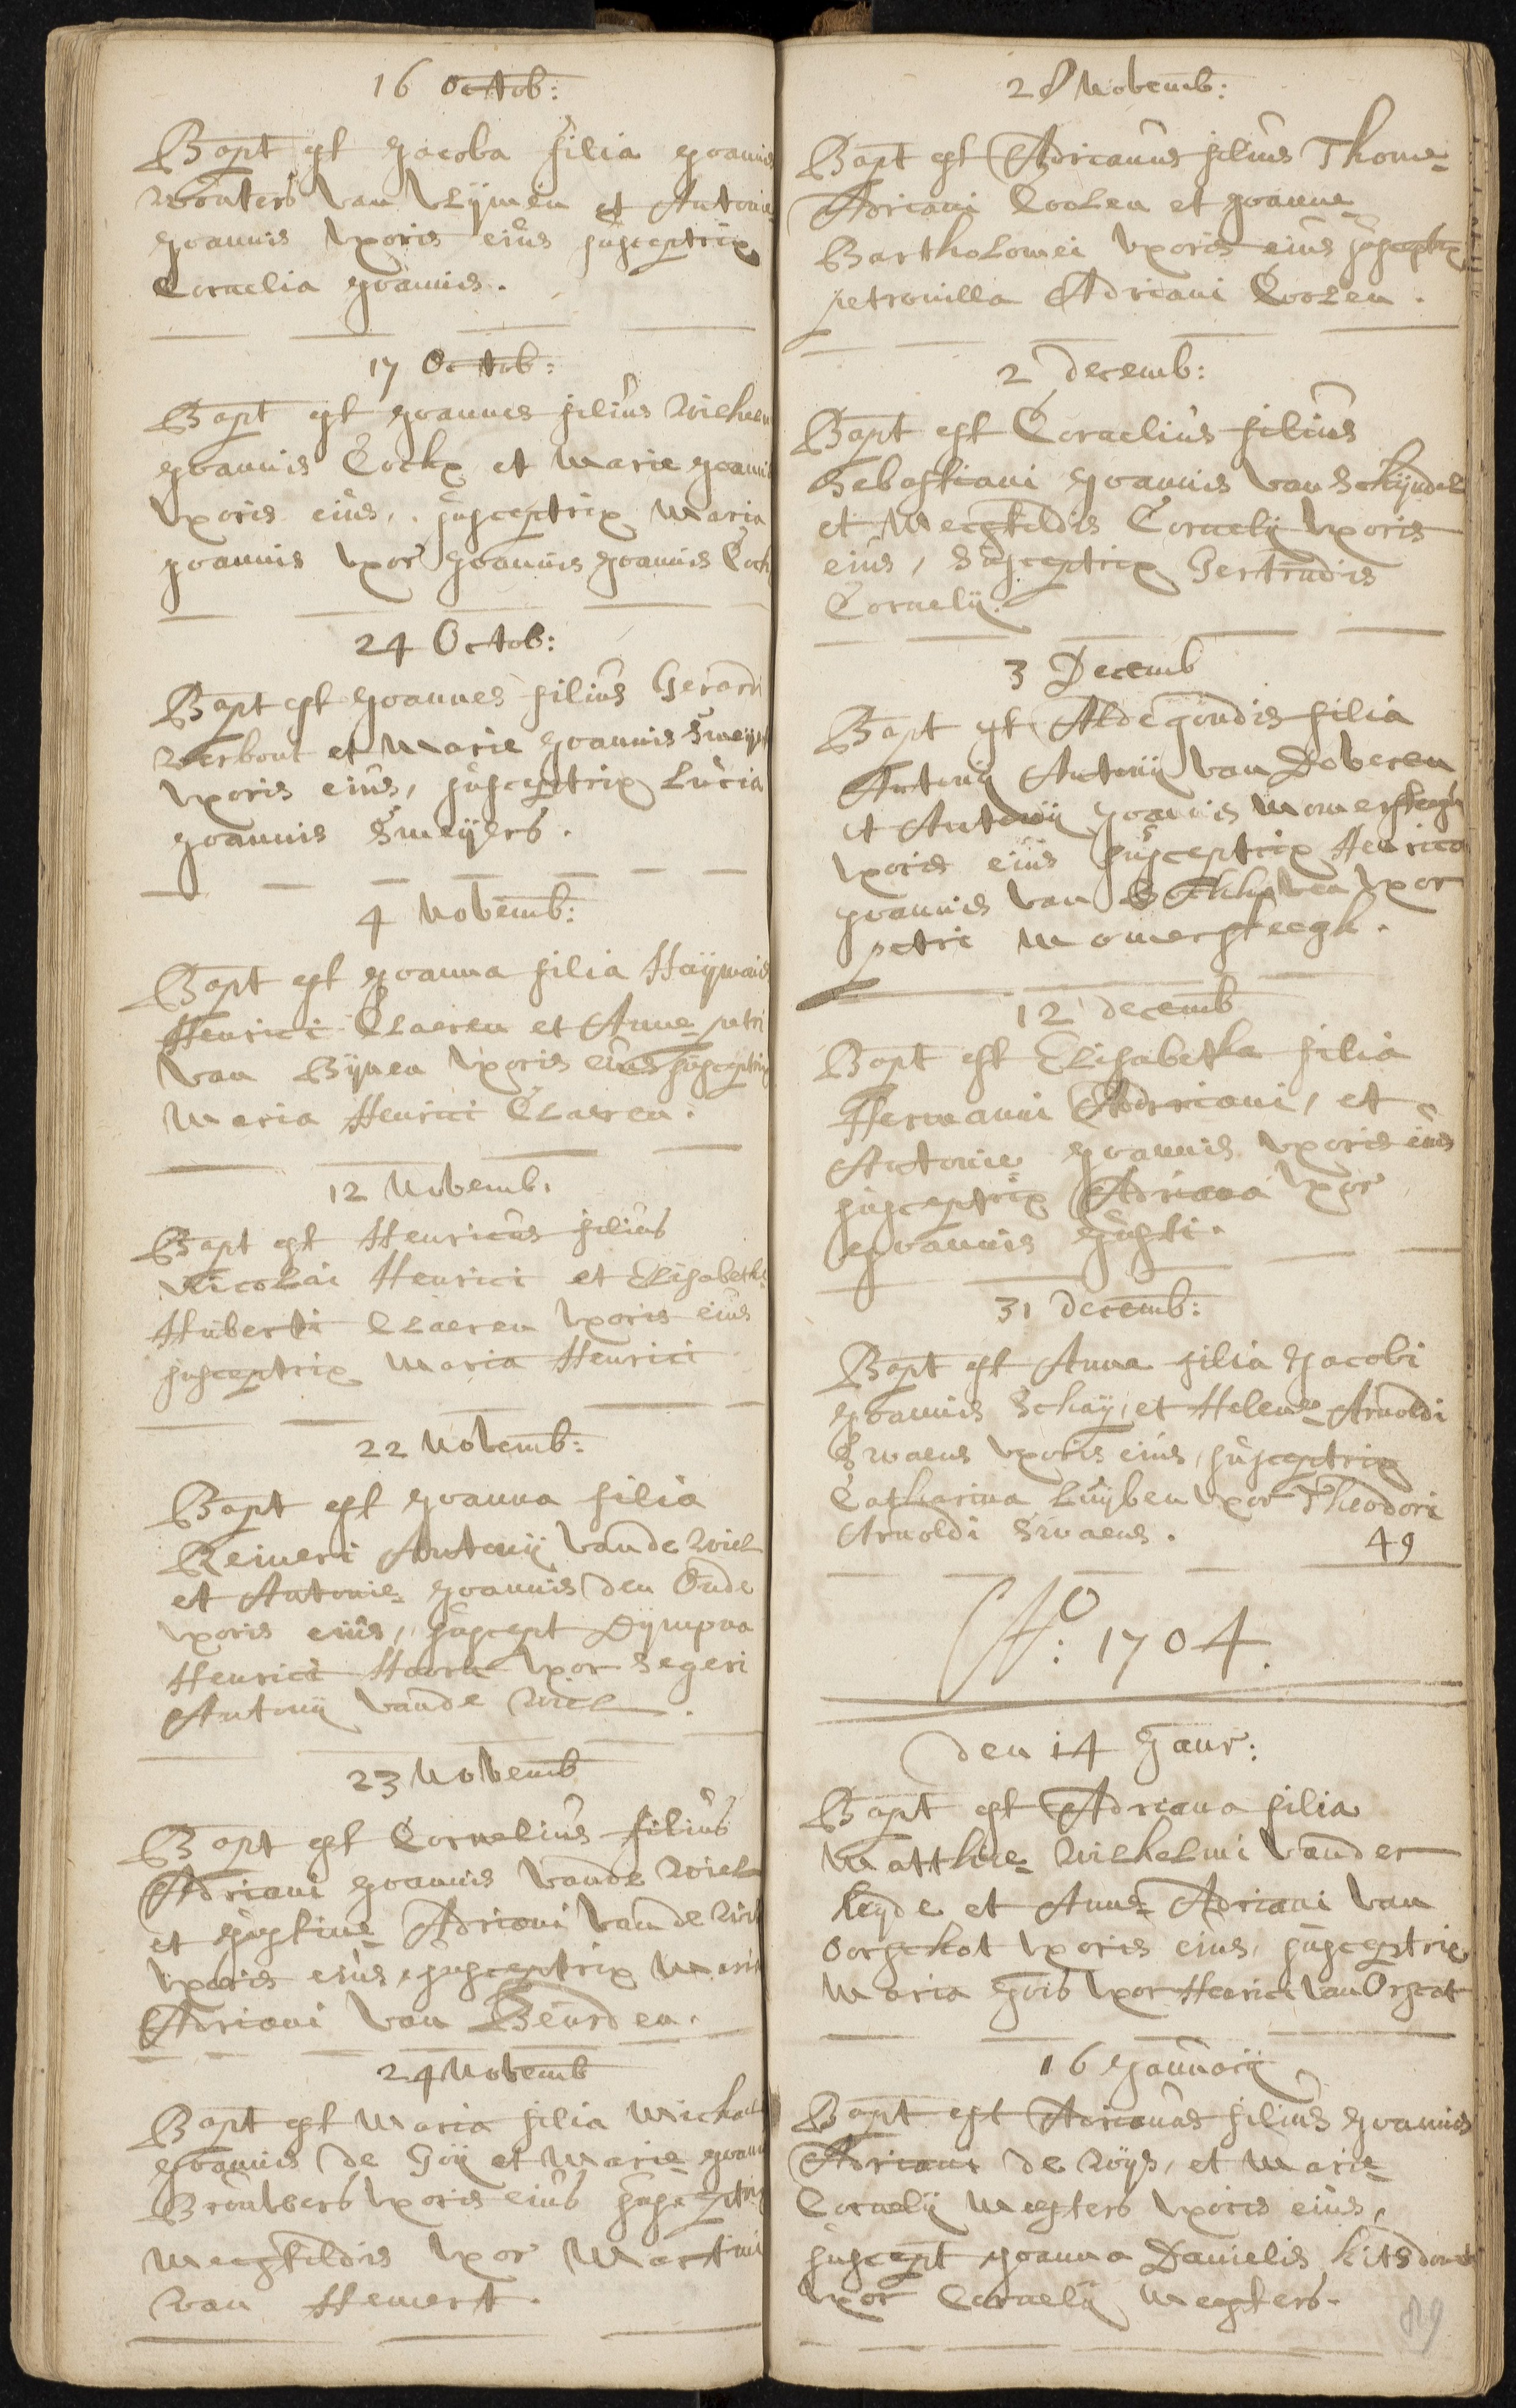 16 Octob:
Bapt est Joacoba filia Joannis
Wouters van Vlijmen et Antonie
Joannis Vxoris eius susceptrix
Cornelia Joannis.
17 Octob:
Bapt est Joannes filius Wilhelm
Joannis Cockx et Marie Joannis
Vxoris eius, susceptrix Maria
Joannis Vxor Joannis Joannis Cock
24 Octob:
Bapt est Joannes filius Gerardi
Verbout et Marie Joannis Smeijers
Vxoris eius, susceptrix Lucia
Joannis Smeijers.
4 Novemb:
Bapt est Joanna filia Haijmanis
Henrici Claeren et Anne petri
van Bijnen Vxoris eius susceptrix
Maria Henrici Claeren.
12 Novemb.
Bapt est Henricus filius
Nicolai Henrici et Elisabethe
Huberti Claeren Vxoris eius
susceptrix Maria Henrici
22 Novemb:
Bapt est Joanna filia
Reineri Antonij vande Wiel
et Antonie Joannis den Oude
Vxoris eius, suscept Dympna
Henrici Vxor Segeri
Antonij vande Wiel.
23 Novemb
Bapt est Cornelius filius
Adriani Joannis vande Wiel
et Justine Adriani vande Wiel
Vxoris eius, susceptrix Maria
Adriani van Beurden.
24 Novemb
Bapt est Maria filia Michael
Joannis de Gij et Marie Joann
Brouwers Vxoris eius susceptrix
Mechtildis Vxor Martini
van Hemert.
28 Novemb:
Bapt est Adrianus filius Thome
Adriani Coolen et Joanne
Bartholomei Vxoris eius susceptrix
petronilla Adriani Coolen.
2 Decemb:
Bapt est Cornelius filius
Sebastiani Joannis van Schijndel
et Mechtildis Cornelij Vxoris
eius, susceptrix Gertrudis
Cornelij.
3 Decemb
Bapt est Aldegondis filia
Antonij Antonij van Doveren
et Antonij Joannis Momersteegh
Vxoris eius susceptrix Henrica
Joannis van Vxor
petri Momersteegh.
12 decemb
Bapt est Elisabetha filia
Hermanni Adriani, et
Antonie Joannis Vxoris eius
susceptrix Adriana Vxor
Joannis Justi.
31 decemb:
Bapt est Anna filia Jacobi
Joannis Schaij, et Helene Arnoldi
Swaens Vxoris eius, susceptrix
Catharina Luijben Vxor Theodori
Arnoldi Swaens.
49
Ao: 1704.
den 14 Janr:
Bapt est Adriana filia
Matthie Wilhelmi vander
heyde et Anne Adriani van
Oorschot Vxoris eius, susceptrix
Maria Goris Vxor Henrici van Orscot
16 Januarij
Bapt est Adrianus filius Joannis
Adriani de Roijs, et Marie
Cornelij Megters Vxoris eius,
suscept Joanna Danielis
Vxor Cornelij Megters.
89